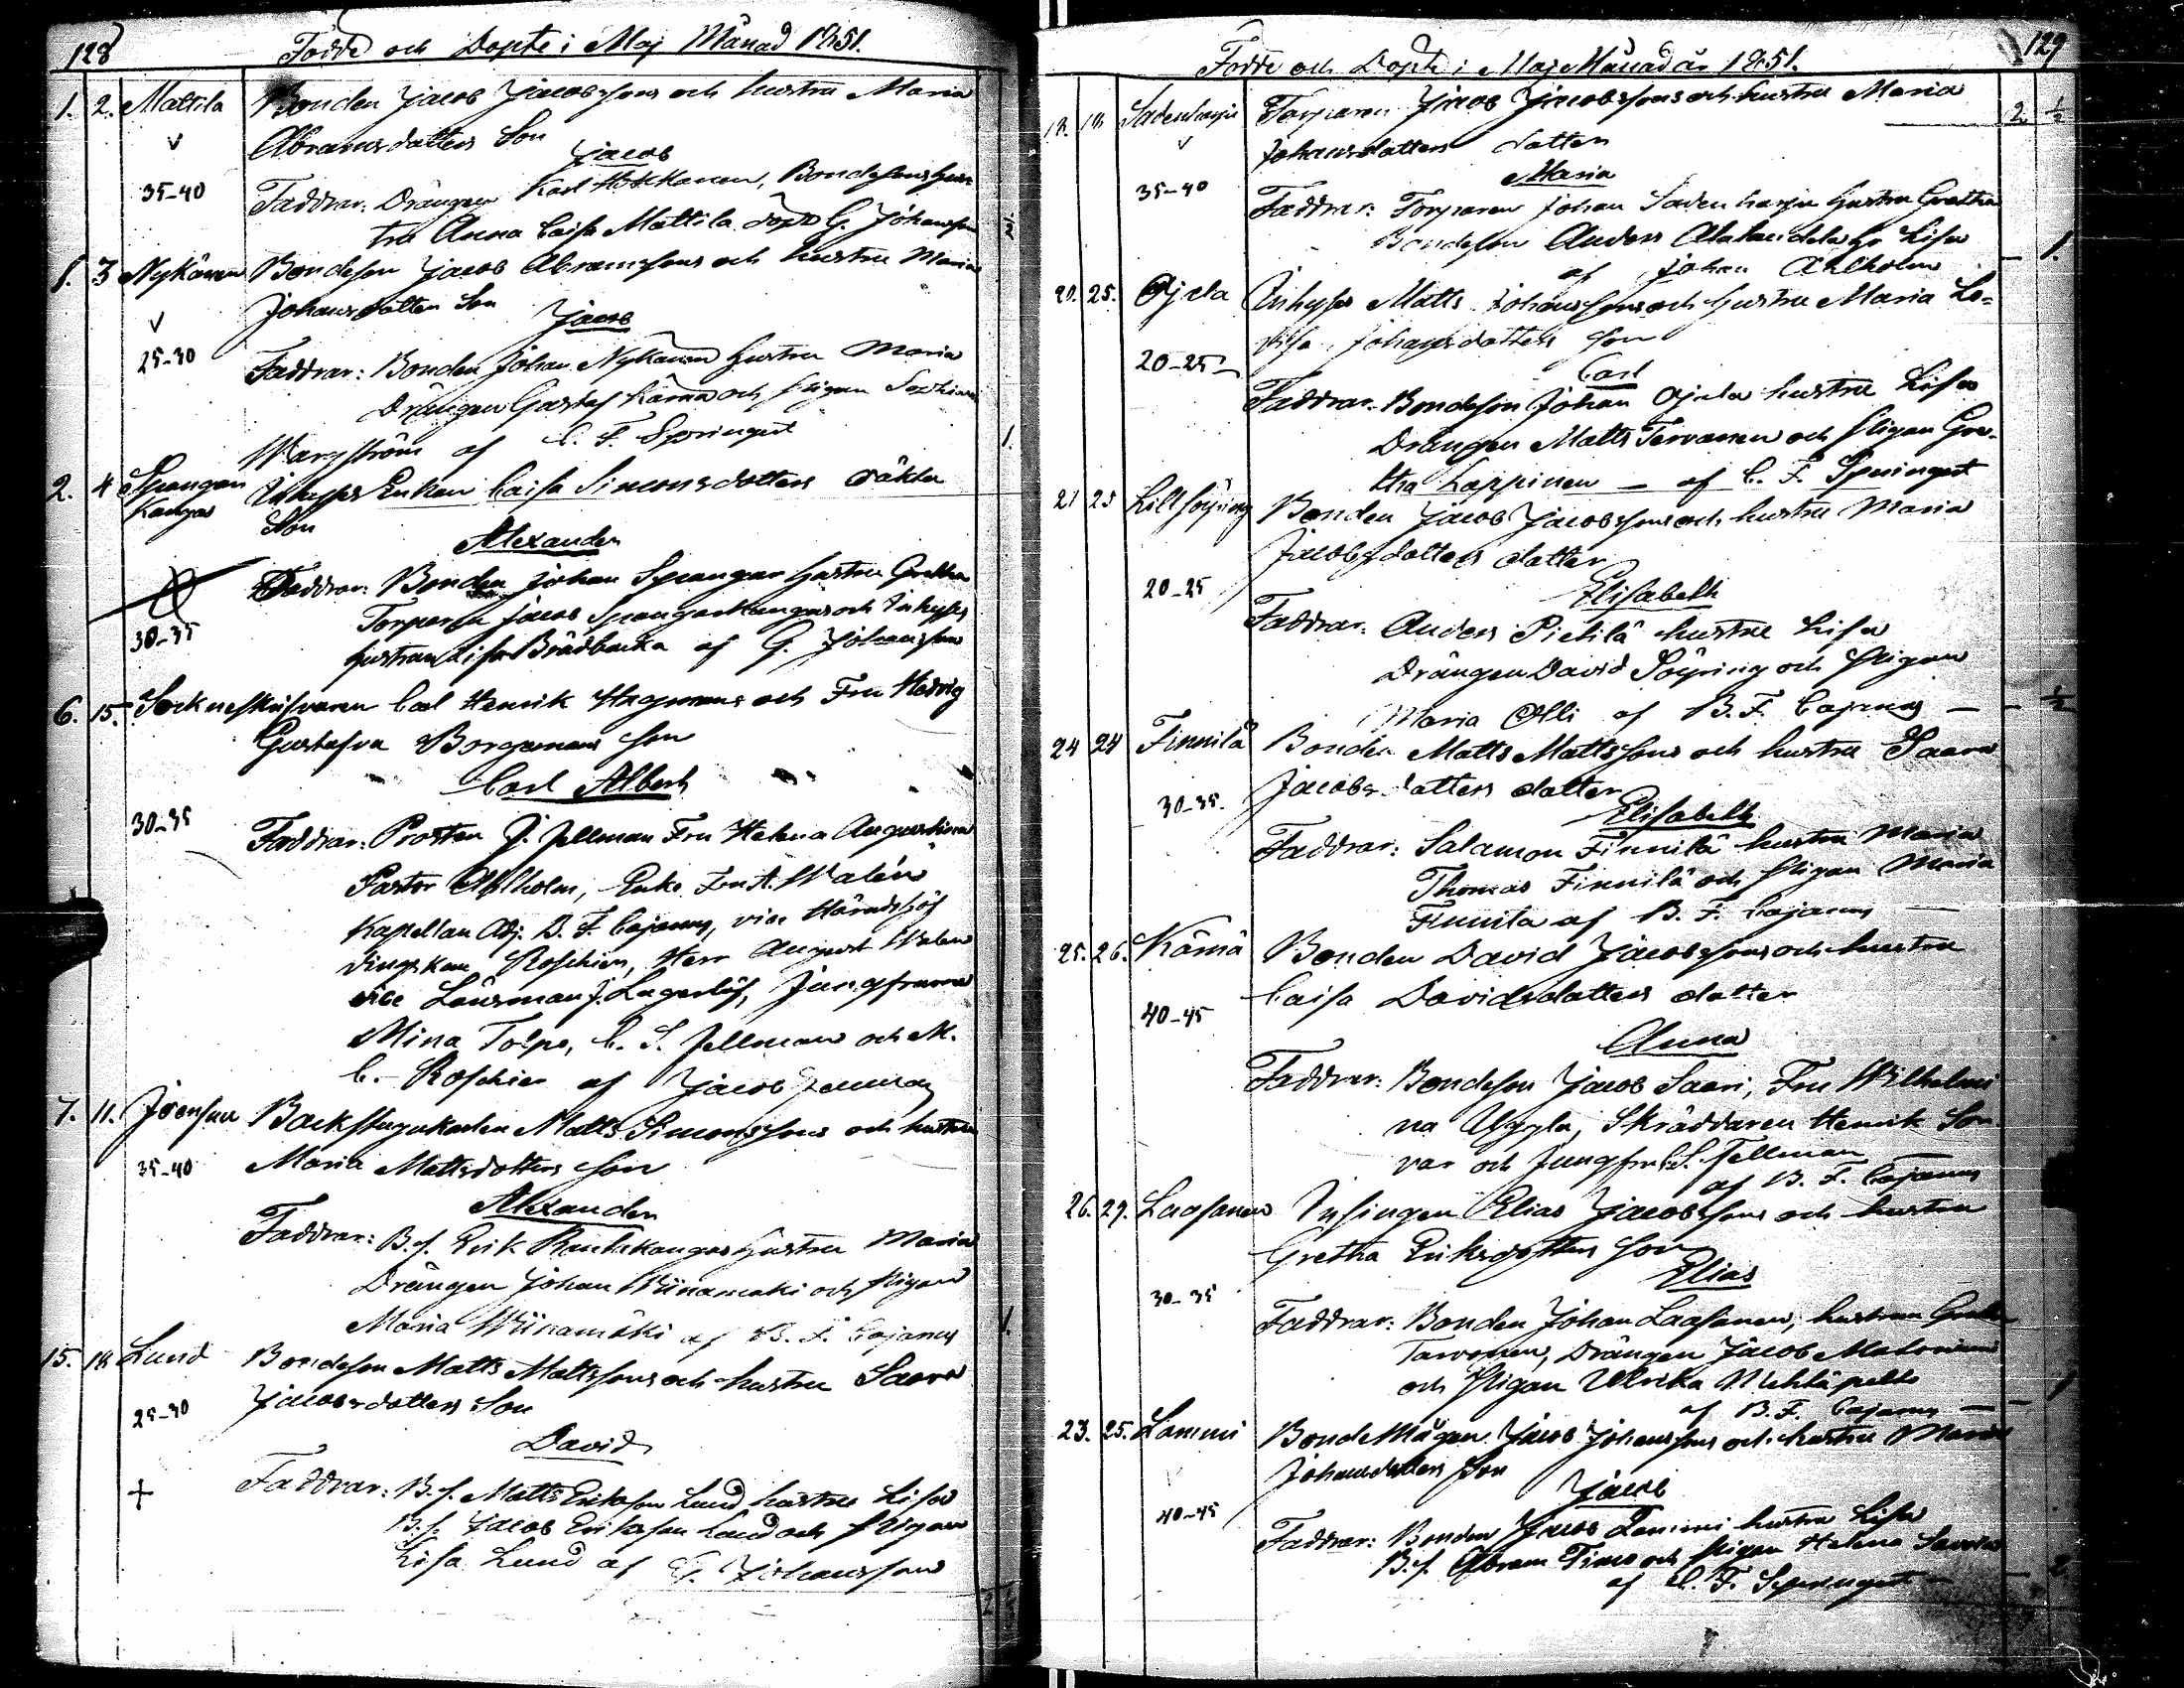 128
Födde och Döpte i Maj Månad 1851.
1. 2. Mattila Bonden Jacob Jacobssons och hustru Maria
Abramsdotters Son
Jacob
35-40 Faddrar: Drängen Karl Hokkanen, Bondesons hus-
tru Anna Caisa Mattila döpt G. Johansson ½
1. 3 Nykänen Bondeson Jacob Abramssons och hustru Maria
Johansdotters Son
Jacob
25-30 Faddrar: Bonden Johan Nykänen hustru Maria
Drängen Gustaf Kärnä och Pigan
Wargström af C. F. Springert 1.
2. 4 Spangar Inhyses Enkan Caisa Simonsdotters oäkta
kangas Son
Alexander
Faddrar: Bonden Johan Spangar hustru Gretha
Torparen Jacob Spangarkangas och Inhyses
30-35 hustrun Lisa Brädbacka af G. Johansson
6. 15. Sockneskrifvaren Carl Henrik Hagmans och Fru Hedvig
Gustafva Borgemans Son
Carl Albert
30-35 Faddrar: Prosten J. Fellman Fru Helena Augustina
Pastor Ahlholm, Enke Fru A. Walén
Kapellan Adj. B. F. Cajanus, vice Häradshöf
dingskan Roschier, Herr August Walén
vice Länsman J. Lagerlöf, Jungfruarne
Mina Tolpo, C. S. Fellman och M.
C. Roschier af Jacob Fellman
7. 11. Joensuu Backstugukarlen Matts Simonssons och hustru
35-40 Maria Mattsdotters Son
Alexander
Faddrar: B.s. Erik Rantakangas hustru Maria
Drängen Johan Wiinamäki och Pigan
Maria Wiinamäki af B. F. Cajanus 1.
15. 18 Lund Bondeson Matts Mattssons och hustru Saara
25-30 Jacobsdotters Son
David
Faddrar: B.s. Matts Eriksson Lund hustru Lisa
B.s. Jacob Eriksson Lund och Pigan
Lisa Lund af G. Johansson
129
Födde och Döpte i Maj Månad år 1851.
18. 18 Sadenharju Torparen Jacob Jacobssons och hustru Maria 2 ½
Johansdotters dotter
Maria
35-40 Faddrar: Torparen Johan Sadenharju hustru Gretha
Bondeson Anders Alahaudala ho Lisa
af Johan Ahlholm 1.
20. 25. Ojala Inhyses Matts Johanssons och hustru Maria Lo-
visa Johansdotters Son
20-25 Carl
Faddrar: Bondeson Johan Ojala hustru Lisa
Drängen Matts Tervonen och Pigan Gre-
tha Lappinen – af C. F. Springert
21 23 Lillsöyring Bonden Jacob Jacobssons och hustru Maria
Jacobsdotters dotter
20-25 Elisabeth
Faddrar: Anders Pietilä hustru Lisa
Drängen David Söyring och Pigan
Maria Olli af B. F. Cajanus ½
24 24 Finnilä Bonden Matts Mattssons och hustru Saara
Jacobsdotters dotter
30-35. Elisabeth
Faddrar: Salamon Finnilä hustru Maria
Thomas Finnilä och Pigan Maria
Finnilä af B. F. Cajanus
25. 26. Kärnä Bonden David Jacobssons och hustru
Caisa Davidsdotters dotter
40-45 Anna
Faddrar: Bondeson Jacob Saari, Fru Wilhelmi
na Uggla, Skräddaren Henrik Son
var och Jungfru C. S. Fellman
af B. F. Cajanus
26. 29. Laasanen Inhysingen Elias Jacobssons och hustru
Gretha Eriksdotters Son
Elias
30-35 Faddrar: Bonden Johan Laasanen, hustrun Gretha
Tarvonen, Drängen Jacob
och Pigan Ulrika 1
af B. F. Cajanus
23. 25. Lammi Bonde Mågen Jacob Johanssons och hustru Maria
Johansdotters Son
Jacob
40-45 Faddrar: Bonden Jacob Lammi hustru Lisa
B.s. Abram Timo och Pigan Helena Savola
af C. F. Springert 2